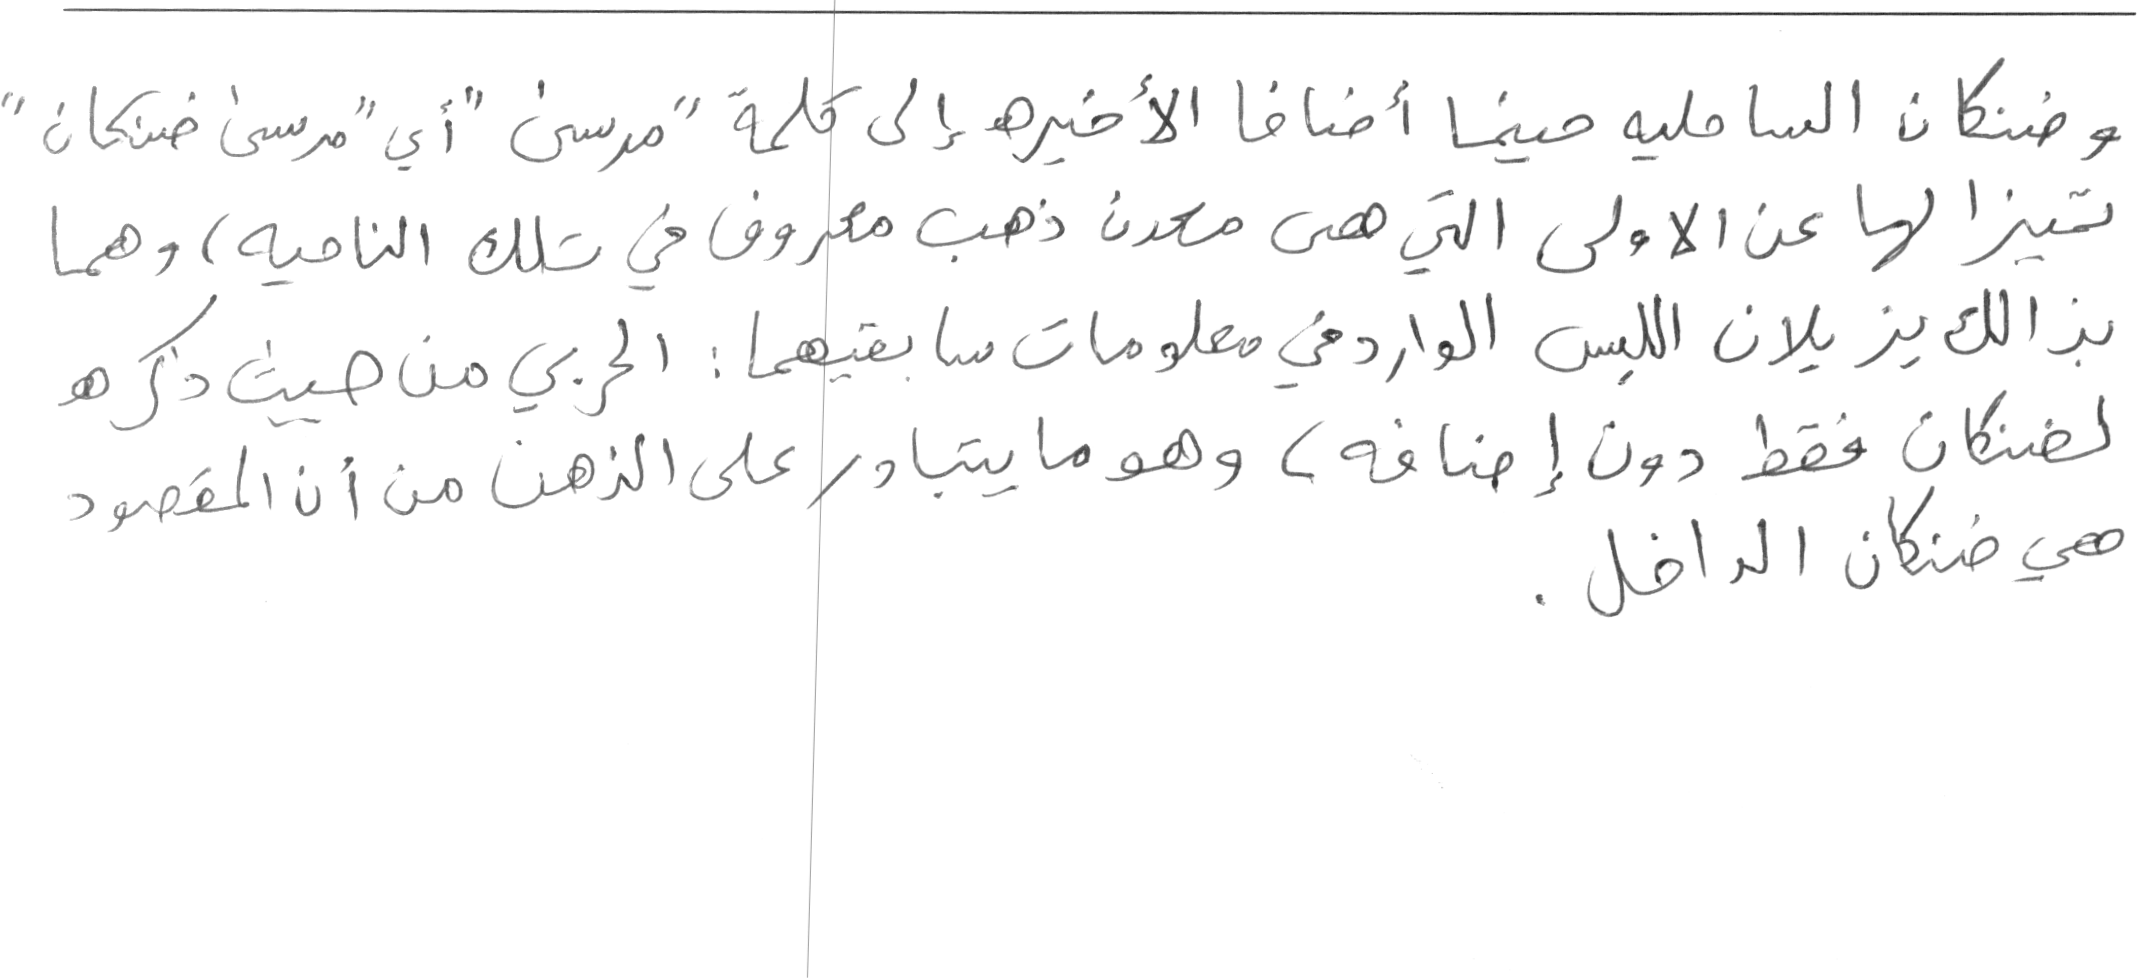 وضنكان الساحليه حينما أضافا الأخيره إلى كلمة "مرسى" أي "مرسى ضنكان"
تميزا لها عن الاولى التي هى معدن ذهب معروف في تلك الناحيه، وهما
بذالك يزيلان اللبس الوارد في معلومات سابقيهما: الحربي من حيث ذكره
لضنكان فقط دون إضافه، وهو ما يتبادر على الذهن من أن المقصود
هي ضنكان الداخل.